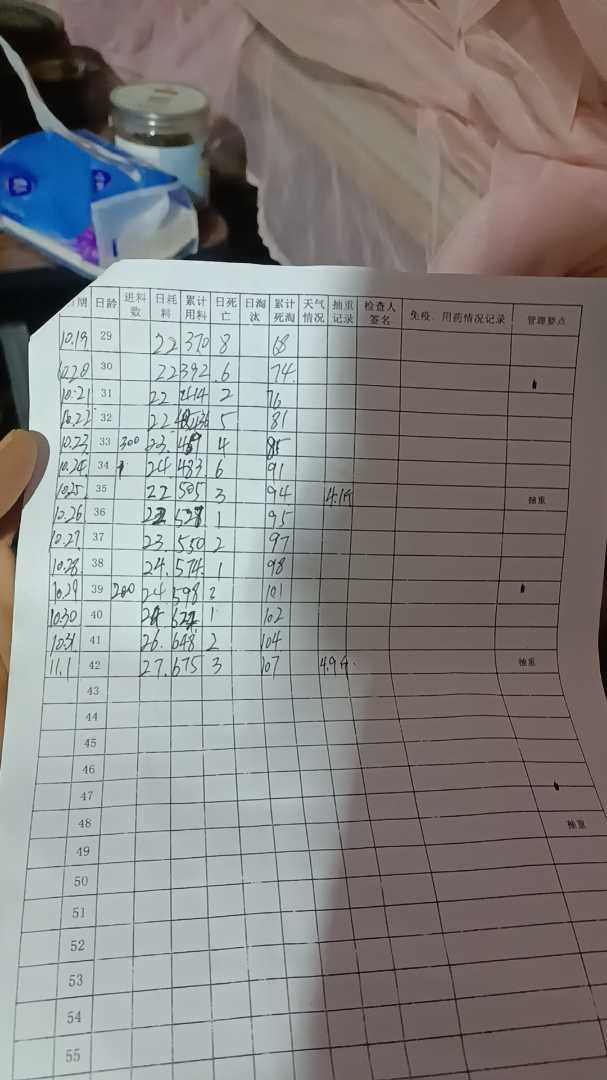 期 日龄 进料数 日耗料 累计用料 日死亡 日淘汰 累计死淘 天气情况 抽重记录 检查人签名 免疫、用药情况记录 管理要点
10.19 29 22 370 8 68
10.20 30 22 392 6 74
10.21 31 22 414 2 76
10.22 32 22 436 5 81
10.23 33 300 23. 4 85
10.24. 34 24. 483 6 91
10.25. 35 22 505 3 94 4.1斤 抽重
10.26 36 22 1 95
10.27 37 23. 550 2 97
10.28. 38 24. 574. 1 98
10.29 39 200 24 598 2 101
10.30 40 24 622 1 102
10.31 41 26. 648 2 104
11.1 42 27. 675 3 107 4.9斤. 抽重
43
44
45
46
47
48 抽重
49
50
51
52
53
54
55